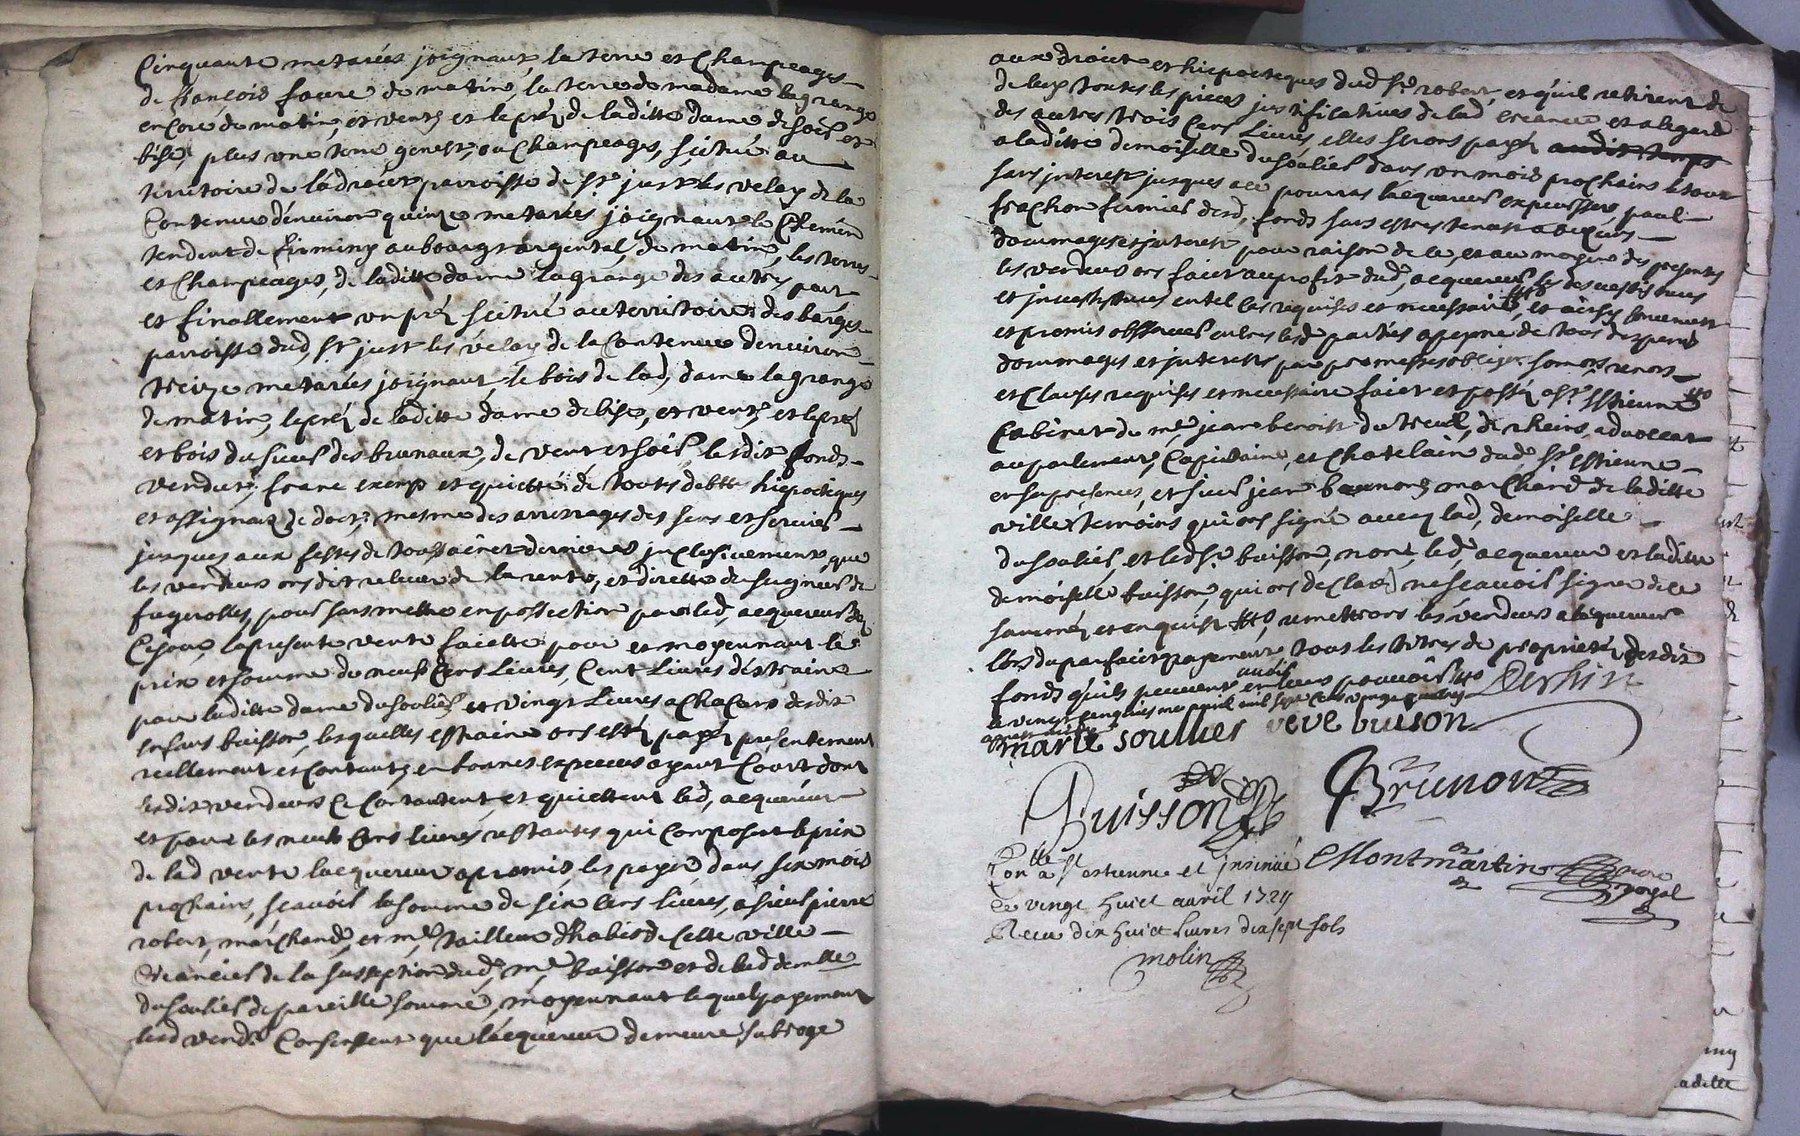 Cinquante metarées joignant la terre et Champeages
de françois faure de matin, la terre de madame lagrange
encore de matin, et vent, et le pré de laditte dame de soir et
bise, plus une terre genest, ou Champeages, scitué au
territoire de ladroict parroisse de St just les velay de la
Contenue d'environ quinze metarées joignant le Chemin
tendant de firminy au bourg argental, de matin, les terres
et Champeages, de laditte dame lagrange des autres part
et finallement un pré scitué au territoire des barges
parroisse dud, St just les velay de la Contenue denviron
treize metarées joignant le bois de lad, dame lagrange
de matin, le pré de laditte dame de bise, et vent, et le pré
et bois du sieur des brunaux, de vent et soir, lesdit fonds
vendus, franc exemp et quitte de touts debtte hipoteques
et assignaõn de doct, mesme des arrerages des sens et servis
jusques aux festes de toussainct derniere jnclusivement, que
les vendeurs ont dit relever de la rente, et directte du seigneur de
fugerolles, pour sans mettre en possection par led, acquereur de
Ce jour, la presente vente faicte pour et moyennant le
prix et somme de neuf Cens livres, Cent livres déstraine
pour laditte dame dusoulier et vingt livres a chacuns desdit
enfans buisson, lesquelles estraine ont esté payé presentement
reellement et Contant, en bonnes expeces ayant Court dont
lesdit vendeurs Ce Contantent, et quittent led, acquereur
et pour les neuf Cens livres restantes qui Composent le prix
de lad vente lacquereur a promis, les payer dans six mois
prochains, scavoir la somme de six Cens livres, a sieur pierre
robert, marchand, et me tailleur d'habis de Cette ville
Creancier de la sucception dud, me buisson et de lad demlle
dusoulier de pareille somme, moyennant lequel payement
lesd vend.rs Consentent que lacquereur demeure subroge
aux droict et hiepoteques dud Sr robert, et qu'il retirent de
de luy toutes les pieces justificatives de lad creance et a legard
des autres trois Cens livres, elles seront payé
a laditte demoiselle dusoulier dans un mois prochains le tout
sans jnterest jusques a ce pourras lacquereur expeusser, paul
frachon fermier desd, fonds sans estres tenus a aucuns
dommages et jnterest pour raison de ce, et au moyen des presentes
les vendeurs ont faict au profit dud, acquereur les devestitures
et jnvestitures en tel cas requises et necessaire, et ainsy convenu
et promis observer entre lesd parties a peyne de tous despens
dommages et jnterests par promesses oblige. somons renons
et Clauses requises et necessaire faict et passé a St estienne
Cabinet de me jean benoist du treuil, de rheins, advocat
au parlement, Capitaine, et Chatelain dud, St estienne
en sa presence, et sieur jean marchand de laditte
ville temoins qui ont signé avec lad, demoiselle
dusoulier, et led Sr buisson, non led, acquereur et laditte
demoiselle buisson, qui ont declaré ne scavoir signe de ce
sommé et enquist, remettront les vendeurs a lacquereur
lors du parfaict payement tout les titres de propriete desdit
fonds qu'ils peuvent avoir en leurs pouvoir
le vingt cinquiesme avril mil sept cens vingt quatre Dershins
marie soullier veve buison
Buisson Brunon
Con.lle a St estienne et jnsinué Montmartin nore royal
Le vingt huict avril 1724
Receu dix huict livres dix sept sols
molin